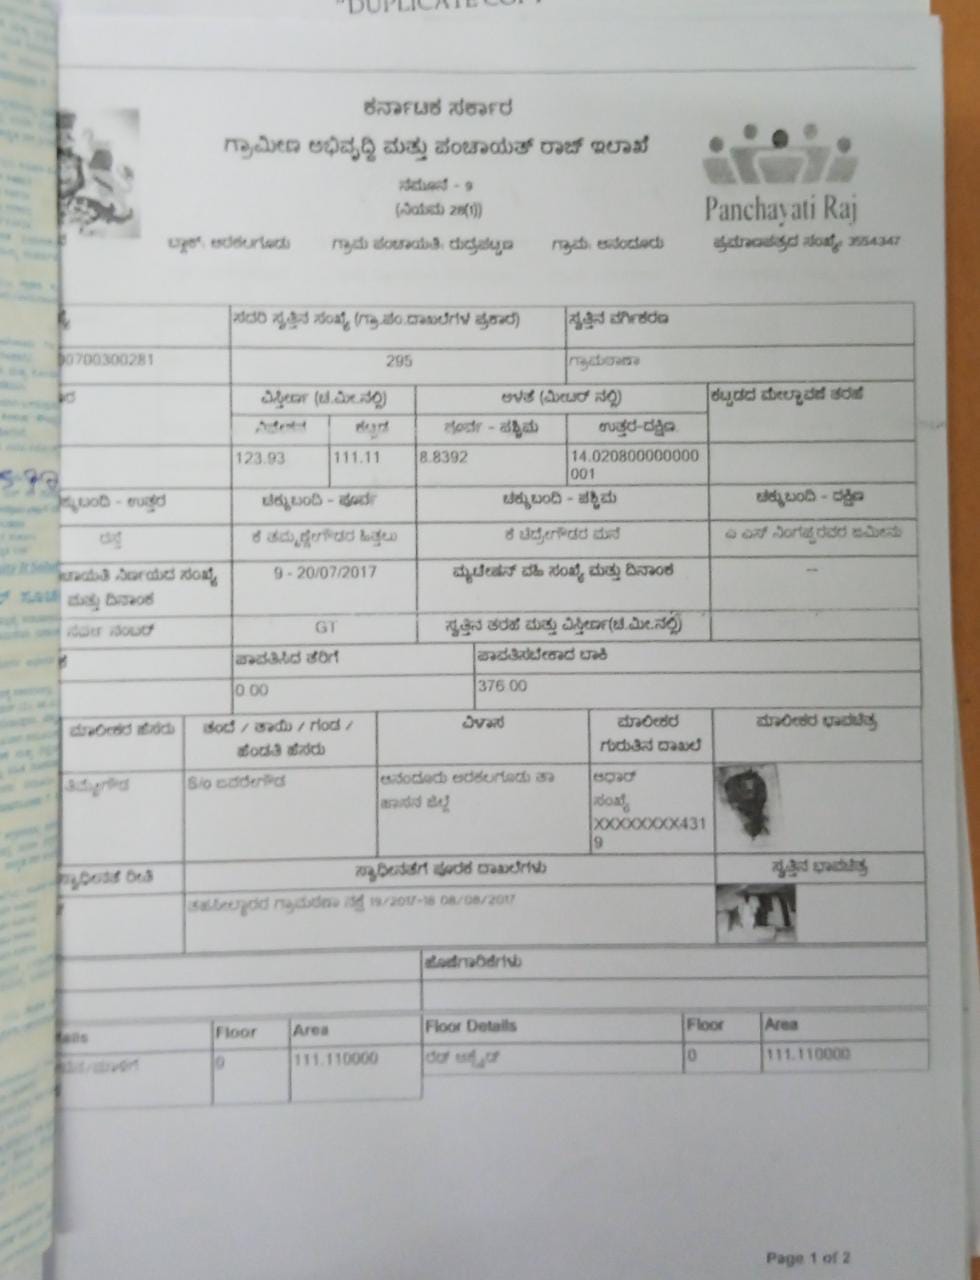 "DUPLICATE COPY
ಕರ್ನಾಟಕ ಸರ್ಕಾರ
ಗ್ರಾಮೀಣ ಅಭಿವೃದ್ಧಿ ಮತ್ತು ಪಂಚಾಯತ್ ರಾಜ್ ಇಲಾಖೆ
ನಮೂನೆ - 9
(ನಿಯಮ 28(1))
Panchayati Raj
ಬ್ಲಾಕ್: ಅರಕಲಗೂಡು ಗ್ರಾಮ ಪಂಚಾಯತಿ: ರುದ್ರಪಟ್ಟಣ ಗ್ರಾಮ: ಆನಂದೂರು ಪ್ರಮಾಣಪತ್ರದ ಸಂಖ್ಯೆ: 3554347
ಸದರಿ ಸ್ವತ್ತಿನ ಸಂಖ್ಯೆ (ಗ್ರಾ.ಪಂ.ದಾಖಲೆಗಳ ಪ್ರಕಾರ) ಸ್ವತ್ತಿನ ವರ್ಗೀಕರಣ
00700300281 295 ಗ್ರಾಮಠಾಣಾ
ವಿಸ್ತೀರ್ಣ (ಚ.ಮೀ.ನಲ್ಲಿ) ಅಳತೆ (ಮೀಟರ್ ನಲ್ಲಿ) ಕಟ್ಟಡದ ಮೇಲ್ಛಾವಣಿ ತರಹೆ
ನಿವೇಶನ ಕಟ್ಟಡ ಪೂರ್ವ - ಪಶ್ಚಿಮ ಉತ್ತರ-ದಕ್ಷಿಣ
123.93 111.11 8.8392 14.020800000000
001
ಕ್ಕುಬಂದಿ - ಉತ್ತರ ಚಕ್ಕುಬಂದಿ - ಪೂರ್ವ ಚಕ್ಕುಬಂದಿ - ಪಶ್ಚಿಮ ಚಕ್ಕುಬಂದಿ - ದಕ್ಷಿಣ
ರಸ್ತೆ ಕೆ ತಮ್ಮಣ್ಣೇಗೌಡರ ಹಿತ್ತಲು ಕೆ ಚಿದ್ರೇಗೌಡರ ಮನೆ ಎ ಎಸ್ ನಿಂಗಪ್ಪರವರ ಜಮೀನು
ಚಾಯತಿ ನಿರ್ಣಯದ ಸಂಖ್ಯೆ 9 - 20/07/2017 ಮ್ಯುಟೇಷನ್ ವಹಿ ಸಂಖ್ಯೆ ಮತ್ತು ದಿನಾಂಕ --
ಮತ್ತು ದಿನಾಂಕ
ಸರ್ವೆ ನಂಬರ್ GT ಸ್ವತ್ತಿನ ತರಹೆ ಮತ್ತು ವಿಸ್ತೀರ್ಣ(ಚ.ಮೀ.ನಲ್ಲಿ)
ಪಾವತಿಸಿದ ತೆರಿಗೆ ಪಾವತಿಸಬೇಕಾದ ಬಾಕಿ
0.00 376.00
ಮಾಲೀಕರ ಹೆಸರು ತಂದೆ / ತಾಯಿ / ಗಂಡ / ವಿಳಾಸ ಮಾಲೀಕರ ಮಾಲೀಕರ ಭಾವಚಿತ್ರ
ಹೆಂಡತಿ ಹೆಸರು ಗುರುತಿನ ದಾಖಲೆ
ತಿಮ್ಮೇಗೌಡ S/o ಜವರೇಗೌಡ ಆನಂದೂರು ಅರಕಲಗೂಡು ತಾ ಆಧಾರ್
ಹಾಸನ ಜಿಲ್ಲೆ ಸಂಖ್ಯೆ
XXXXXXXX431
9
ಸ್ವಾಧೀನತೆ ರೀತಿ ಸ್ವಾಧೀನತೆಗೆ ಪೂರಕ ದಾಖಲೆಗಳು ಸ್ವತ್ತಿನ ಭಾವಚಿತ್ರ
ತಹಸೀಲ್ದಾರರ ಗ್ರಾಮಠಾಣಾ ನಕ್ಷೆ 19/2017-18 08/08/2017
ಹೊಣೆಗಾರಿಕೆಗಳು
tails Floor Area Floor Details Floor Area
0 111.110000 ರೆಡ್ ಆಕ್ಸೈಡ್ 0 111.110000
Page 1 of 2